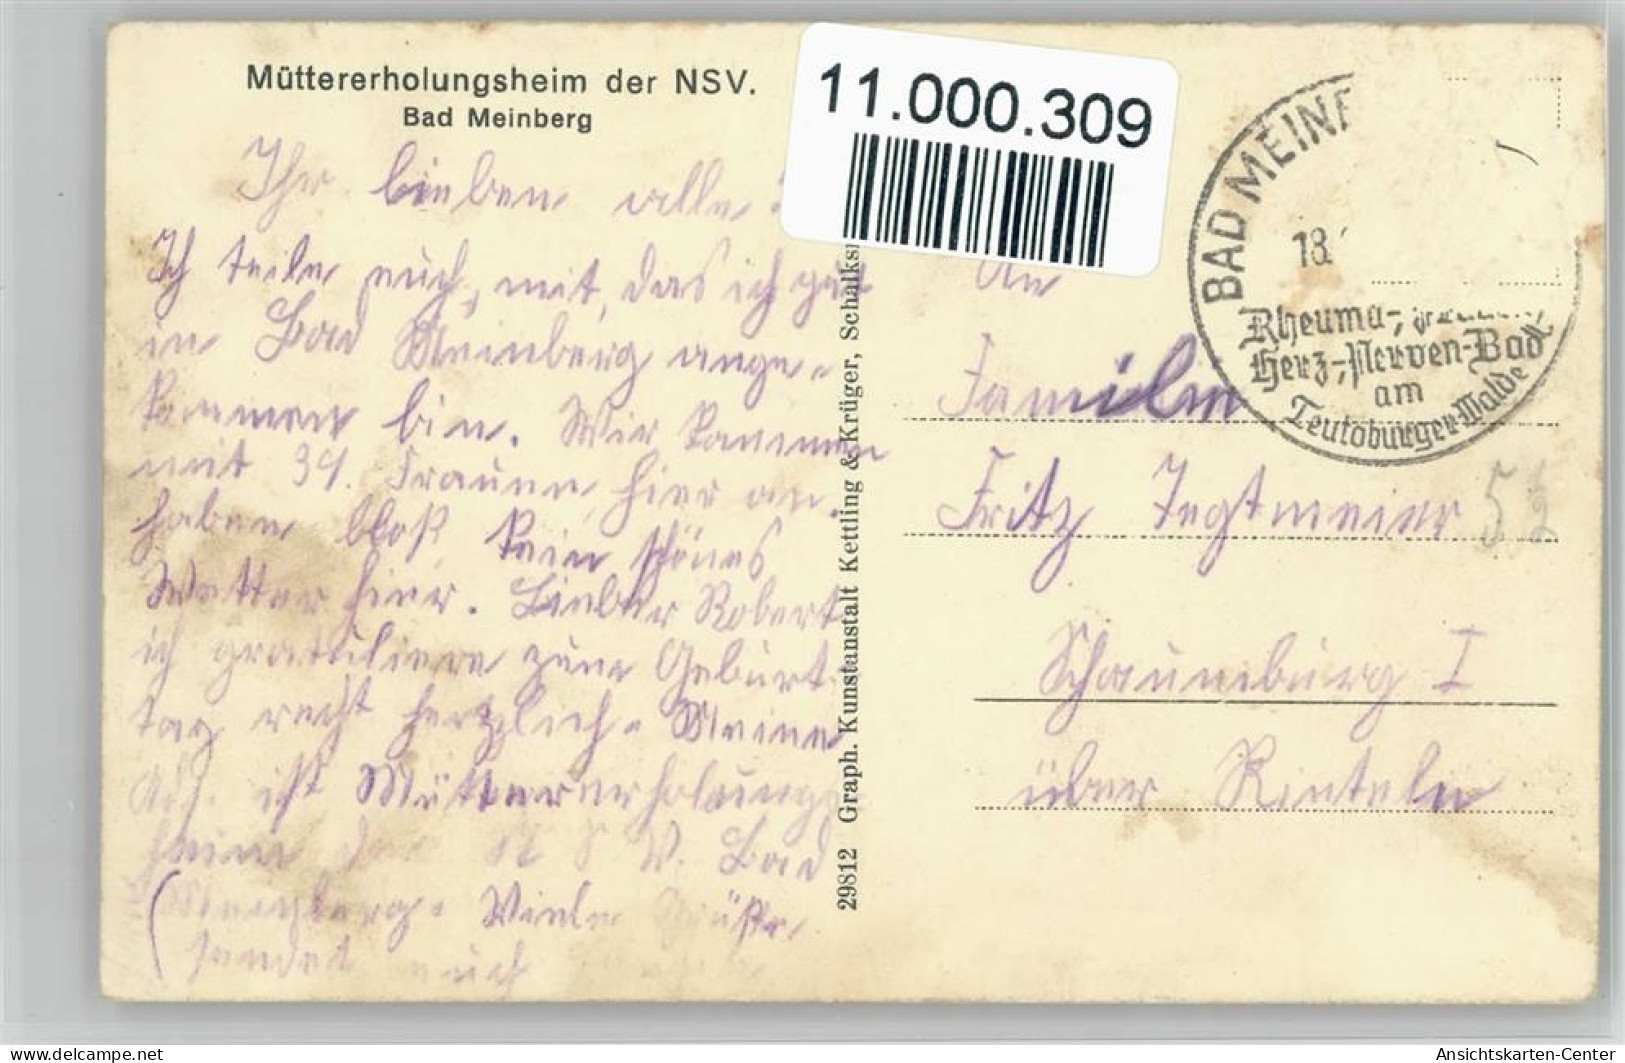 Müttererholungsheim der NSV.
Bad Meinberg
11.000.309
Ihr lieben alle
Ich teile euch, mit, das ich gut
in Bad Meinberg ange-
kommen bin. Wir kammen
mit 34. Frauen hier an.
haben bloß kein schönes
Wetter hier. Lieber Robert
ich gratuliere zum Geburt
tag recht herzlich. Meine
Adj. ist Müttererholungs
heim der N S V. Bad
(Meinberg. Viele Grüße
sendet euch
29812 Graph. Kunstanstalt Kettling & Krüger, Schalks
BAD MEINB
18.
Rheuma-,
Herz-, Nerven-Bad
am
Teutoburger Walde
An
Familie
Fritz Tegtmeier
Schaumburg I
über Rinteln
Ansichtskarten-Center
www.delcampe.net